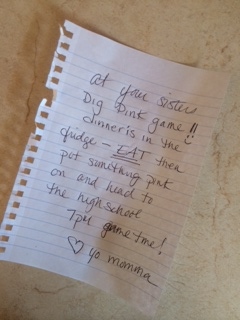 at your sister
Dig Pink game!!
dinner is in the
fridge - EAT then
put something pink
on and head to
the highschool
7pm game time!
♡ yo momma